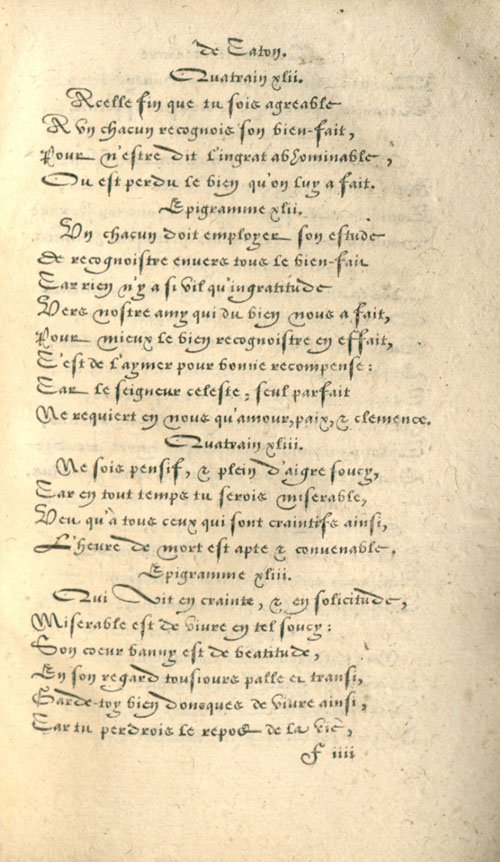 de Caton.
Quatrain xlii.
Acelle fin que tu sois agreable
A vn chacun recognois son bien-fait,
Pour n'estre dit l'ingrat abhominable,
Ou est perdu le bien qu'on luy a fait.
Epigramme xlii.
Vn chacun doit employer son estude
De recognoistre envers tous le bien-fait
Car rien n'y a si vil qu'ingratitude
Vers nostre amy qui du bien nous a fait,
Pour mieux le bien recognoistre en effait,
C'est de l'aymer pour bonne recompense:
Car le seigneur celeste, seul parfait
Ne requiert en nous qu'amour, paix, & clemence.
Quatrain xliii.
Ne sois pensif, & plein d'aigre soucy,
Car en tout temps tu serois miserable,
Veu qu'à tous ceux qui sont craintifs ainsi,
L'heure de mort est apte & convenable.
Epigramme xliii.
Qui Vit en crainte, & en solicitude,
Miserable est de vivre en tel soucy:
Son coeur banny est de beatitude,
En son regard tousiours palle et transi,
Garde-toy bien doncques de vivre ainsi,
Car tu perdrois le repos de la vie,
F iiii